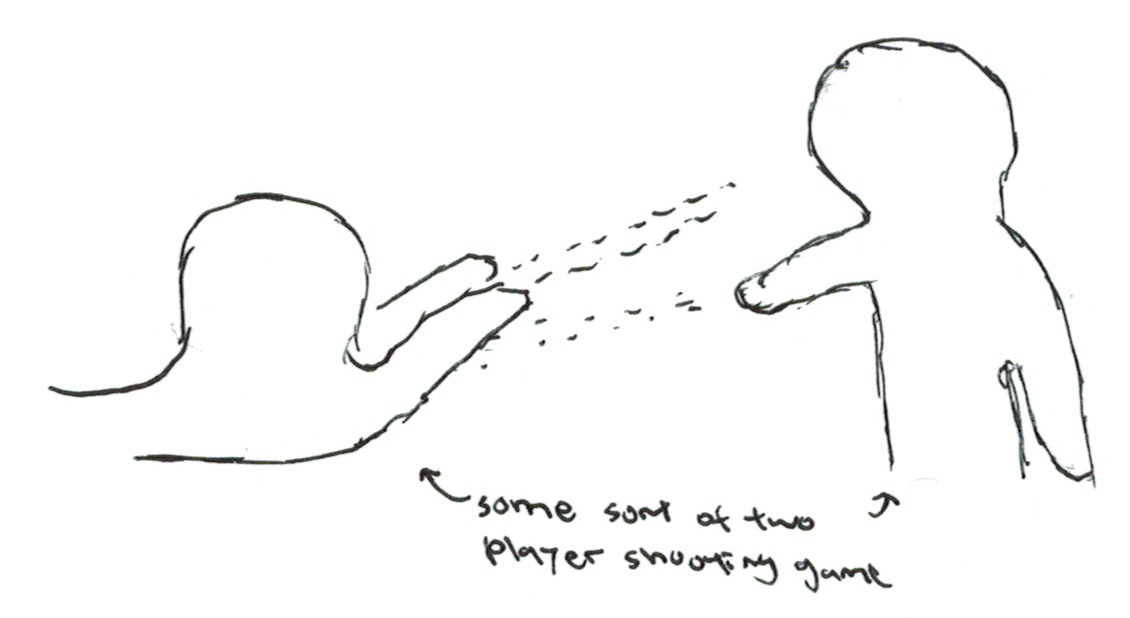 some sort of two
player shooting game